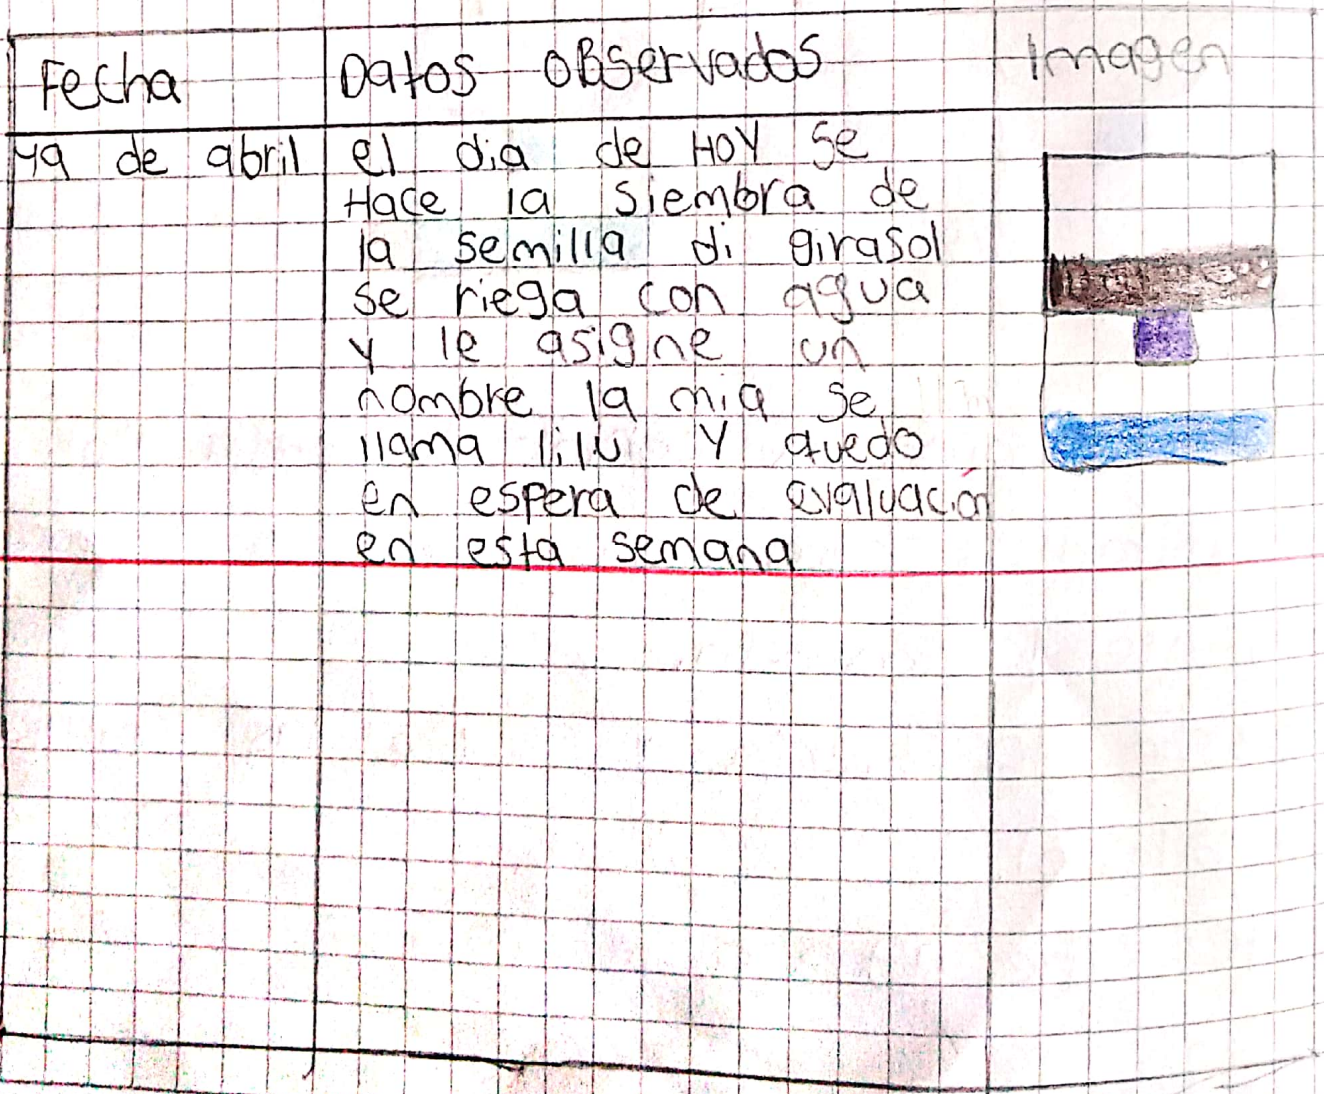 Fecha
Datos observados
Imagen
19 de abril
el dia de HOY se
Hace la siembra de
la semilla di girasol
se riega con agua
y le asigne un
nombre la mia se
llama lilu y quedo
en espera de evaluación
en esta semana